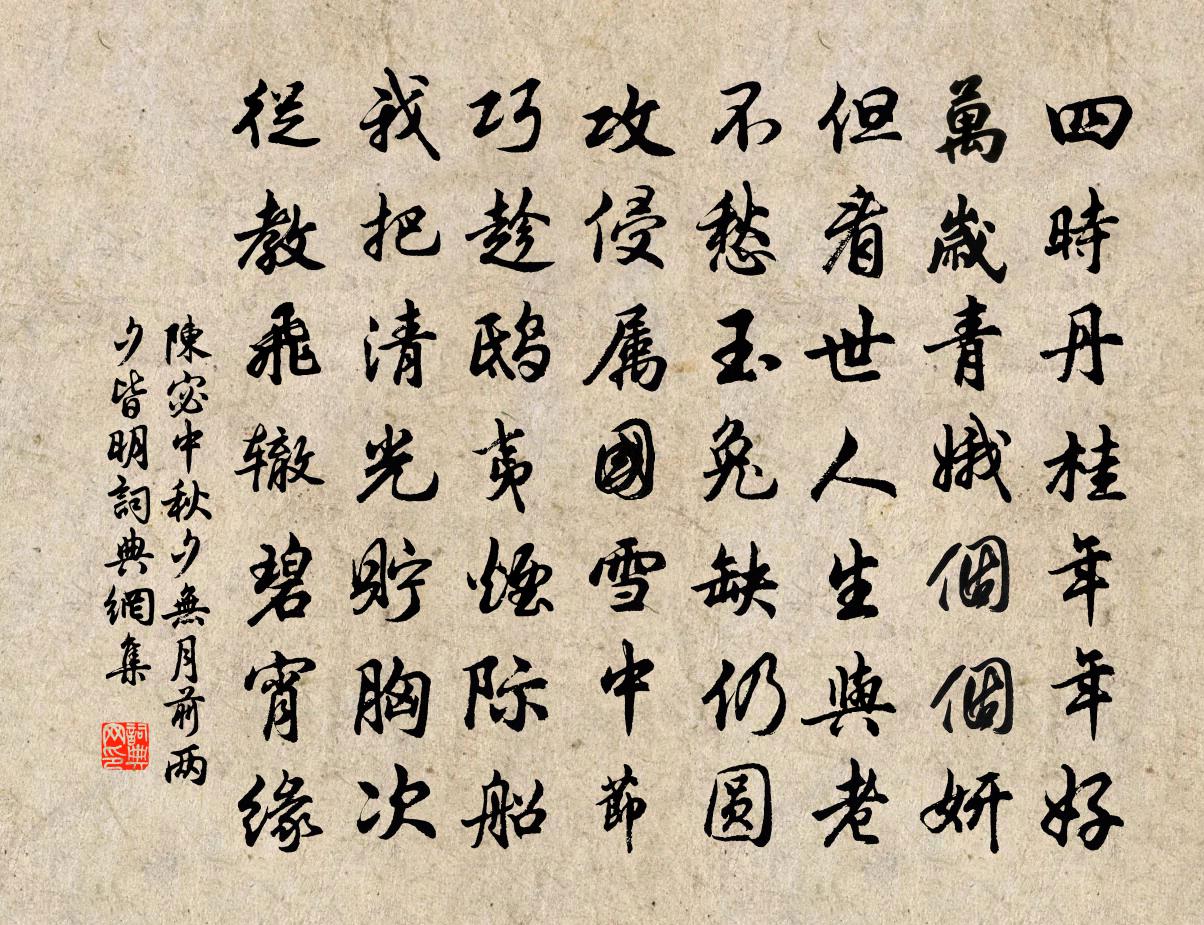 四時丹桂年年好
萬歲青娥個個妍
但看世人生與老
不愁玉兔缺仍圓
攻侵属國雪中節
巧趁鴟夷煙际船
我把清光貯胸次
從教飛辙碧宵緣
陳宓中秋夕無月前两
夕皆明詞典網集
詞典网印